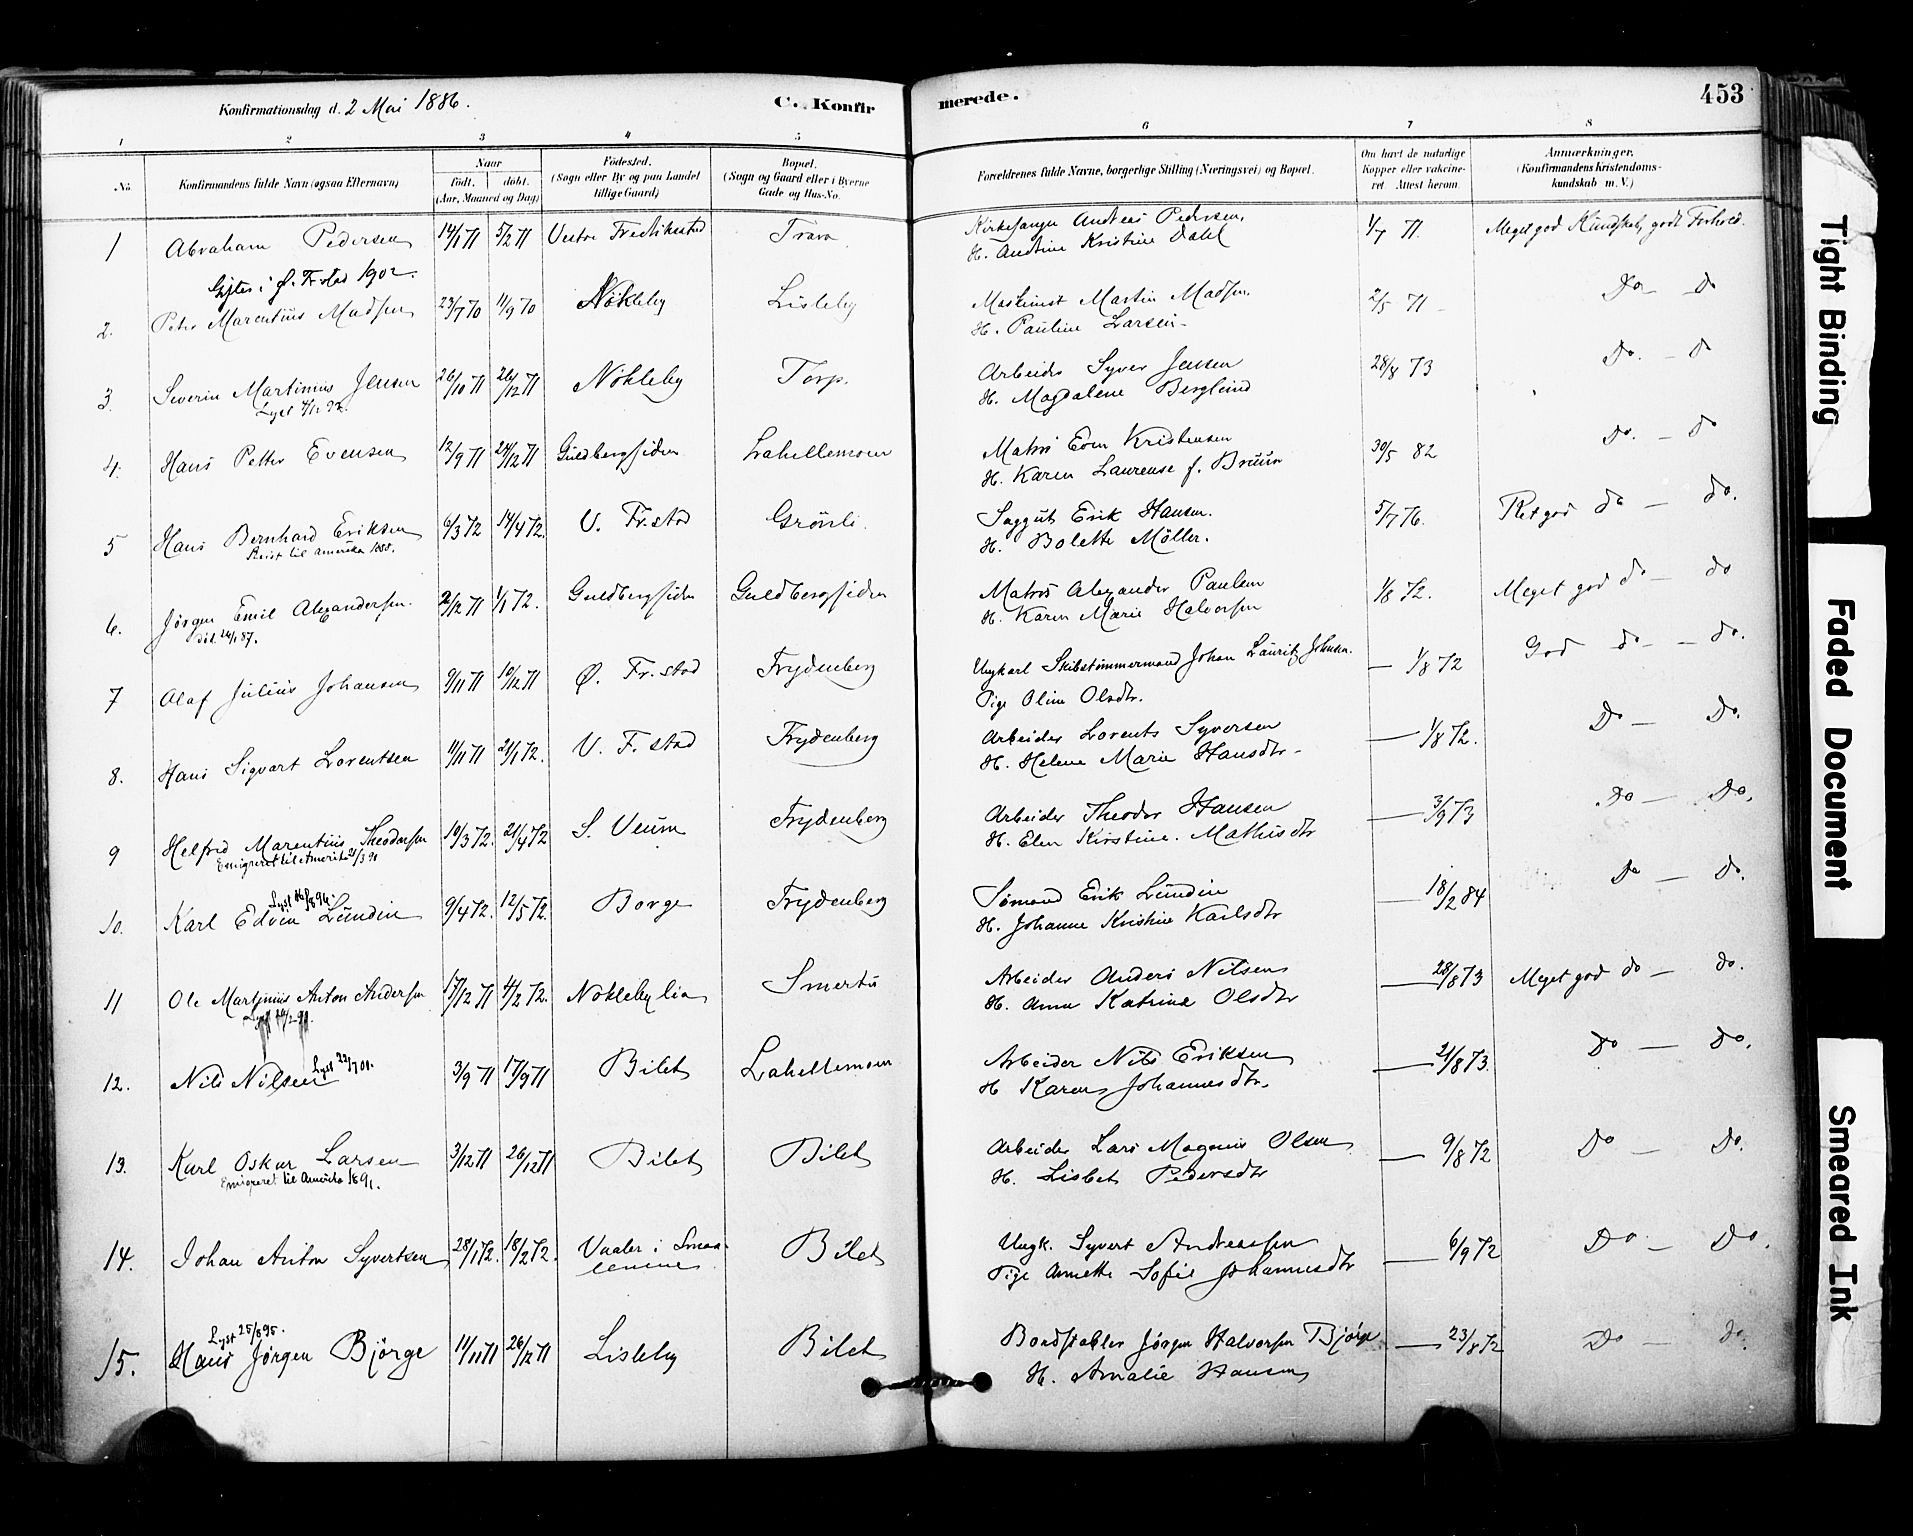 Konfirmationsdag d. 2 Mai 1886.
C. Konfirmerede.
453
1 2 3 4 5 6 7 8
No.
Konfirmandens fulde Navn (ogsaa Efternavn)
Naar
født. døbt.
(Aar, Maaned og Dag)
Fødested.
(Sogn eller By og paa Landet tillige Gaard)
Bopæl.
(Sogn og Gaard eller i Byerne Gade og Hus-No.
Forældrenes fulde Navne, borgerlige Stilling (Næringsvei) og Bopæl.
Om havt de naturlige Kopper eller vaccineret. Attest herom.
Anmærkninger.
(Konfirmandens Kristendomskundskab m. V.)
1 Abraham Pedersen 14/1 71 5/2 71 Vestre Fredrikstad Trara Kirkesanger Andreas Pedersen. 1/7 71. Meget god Kundskab, godt Forhold.
H. Andrine Kristine Dahl
Gjtes i Ø. Fr.stad 1902.
2. Peter Marentius Madsen 23/7 70 11/9 70 Nökleby Lisleby Maskinist Martin Madsen. 2/5 71 Do - do
H. Pauline Larsen
3. Severin Martinius Jensen 26/10 71 26/12 71 Nökleby Torp. Arbeider Syver Jensen 28/8 73 Do. - do
H. Magdalene Berglund
4. Hans Petter Evensen 12/9 71 24/12 71 Guldbergsiden Lahellemoen Matros Even Kristensen 30/5 82 Do. - do
H. Karen Laurense f. Bruun
5 Hans Bernhard Eriksen 6/3 72 14/4 72. V. Fr.stad Grönli. Saggut Erik Hansen. 5/7 76. Ret god do - do.
Reist til Amerika 1888.
H. Bolette Möller.
6. Jørgen Emil Alexandersen. 2/12 71 1/1 72. Guldbergsiden Guldbergsiden Matros Alexander Paulsen 1/8 72. Meget god do - do
H. Karen Marie Halvorsen
7 Olaf Julius Johansen 9/11 71 10/12 71 Ø. Fr.stad Frydenberg Ungkarl Skibstømmermand Johan Lauritz Johnsen. — 1/8 72 God do - do.
Pige Oline Olsdtr.
8. Hans Sigvart Lorentsen 11/11 71 21/1 72. V. F.stad Frydenberg Arbeider Lorents Syversen — 1/8 72. Do - Do.
H. Helene Marie Hansdtr
9 Helfred Marentius Theodorsen 10/3 72. 21/4 72 S. Veum Frydenberg Arbeider Theodor Hansen — 3/9 73 Do - Do.
Emigreret til Amerika 21/3 91
H. Elen Kirstine. Mathisdtr
10. Karl Edvin Lundin 9/4 72. 12/5 72. Borge Frydenberg Sømand Erik Lundin — 18/2 84 Do - Do.
H. Johanne Kristine Karlsdtr
11 Ole Martinius Anton Andersen 17/12 71 4/2 72. Nöklebylia Smertu Arbeider Anders Nilsen — 28/8 73 Meget god do - do.
H. Anne Katrine Olsdtr
12. Nils Nilsen Lyst 22/7 01. 3/9 71 17/9 71 Bilet Lahellemoen Arbeider Nils Eriksen — 21/8 73. Do - Do.
H Karen Johannesdtr.
13. Karl Oskar Larsen 3/12 71 26/12 71 Bilet Bilet Arbeider Lars Magnus Olsen — 9/8 72 Do - Do.
Emigreret til Amerika 1891.
H. Lisbet Pedersdtr
14. Johan Anton Syvertsen 28/1 72. 18/2 72. Vaaler i Smaalenene Bilet Ungk. Syvert Andreassen — 6/9 72 Do - Do.
Pige Annette Sofie Johannesdtr
Lyst 25/8 95.
15. Hans Jørgen Bjørge 11/11 71 26/12 71 Lisleby Bilet Bordstabler Jørgen Halvorsen Bjørge — 23/8 72 Do - do.
H. Amalie Hansen
Tight Binding
Faded Document
Smeared Ink